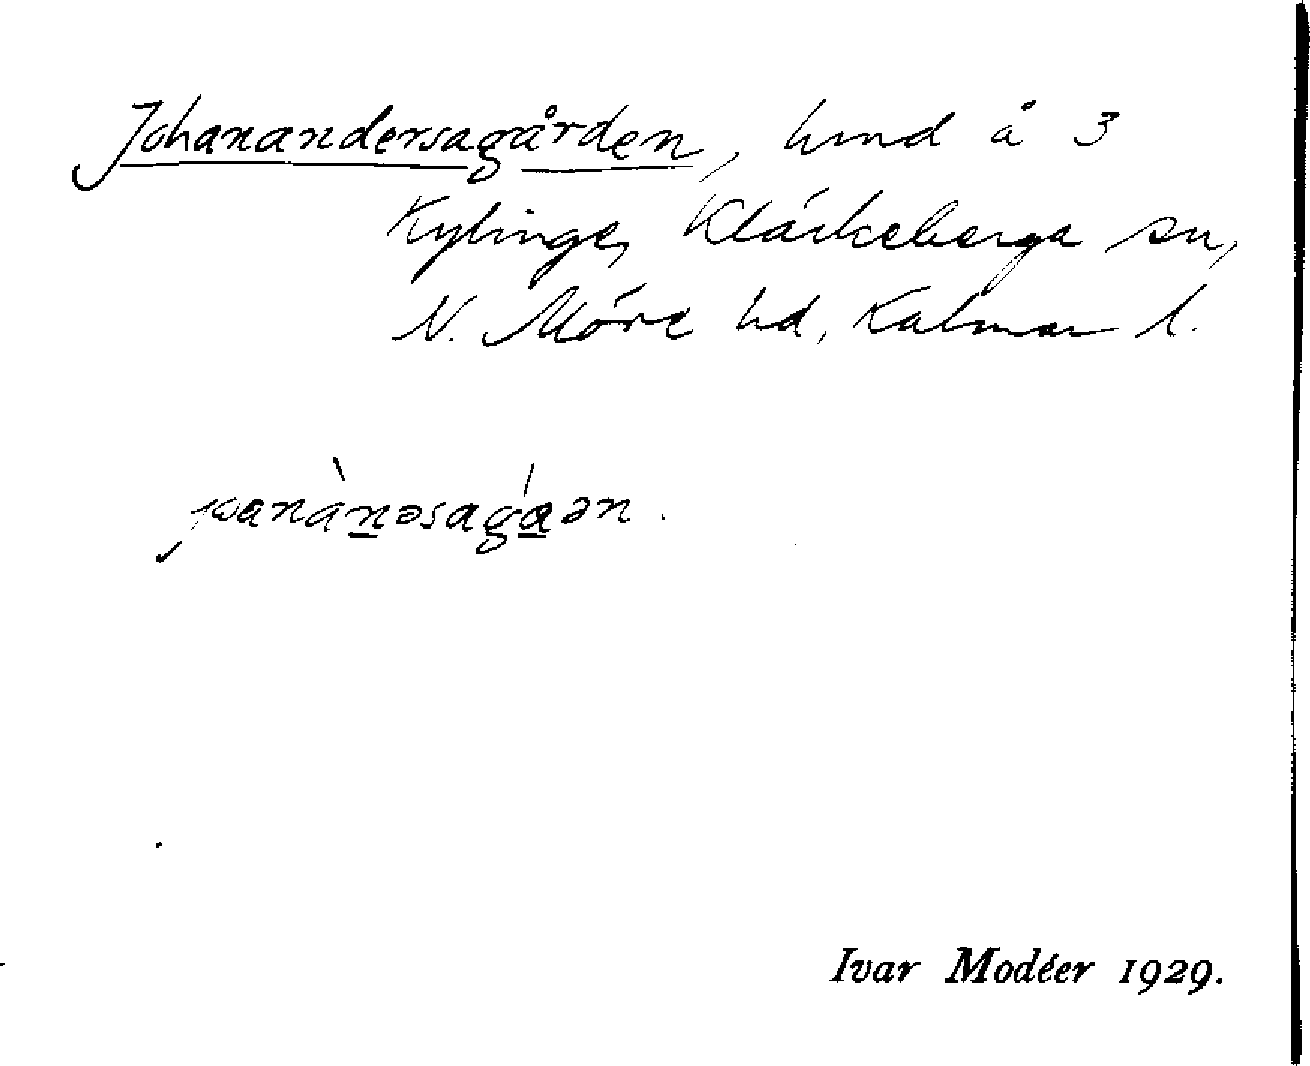 Johanandersagården, hmd å 3
Kylinge, Kläckeberga sn,
N. Möre hd, Kalmar l.
Ivar Modéer 1929.